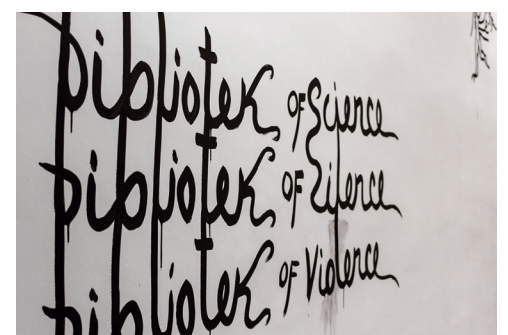 bibliotek of Science
bibliotek of Silence
bibliotek of Violence